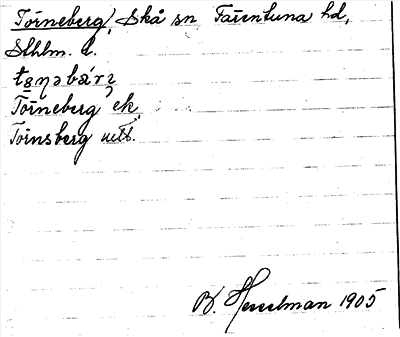 Törneberg, Skå sn Färentuna hd,
Sthlm. l.
Törneberg ek.
Törnsberg uttl.
B. Hesselman 1905